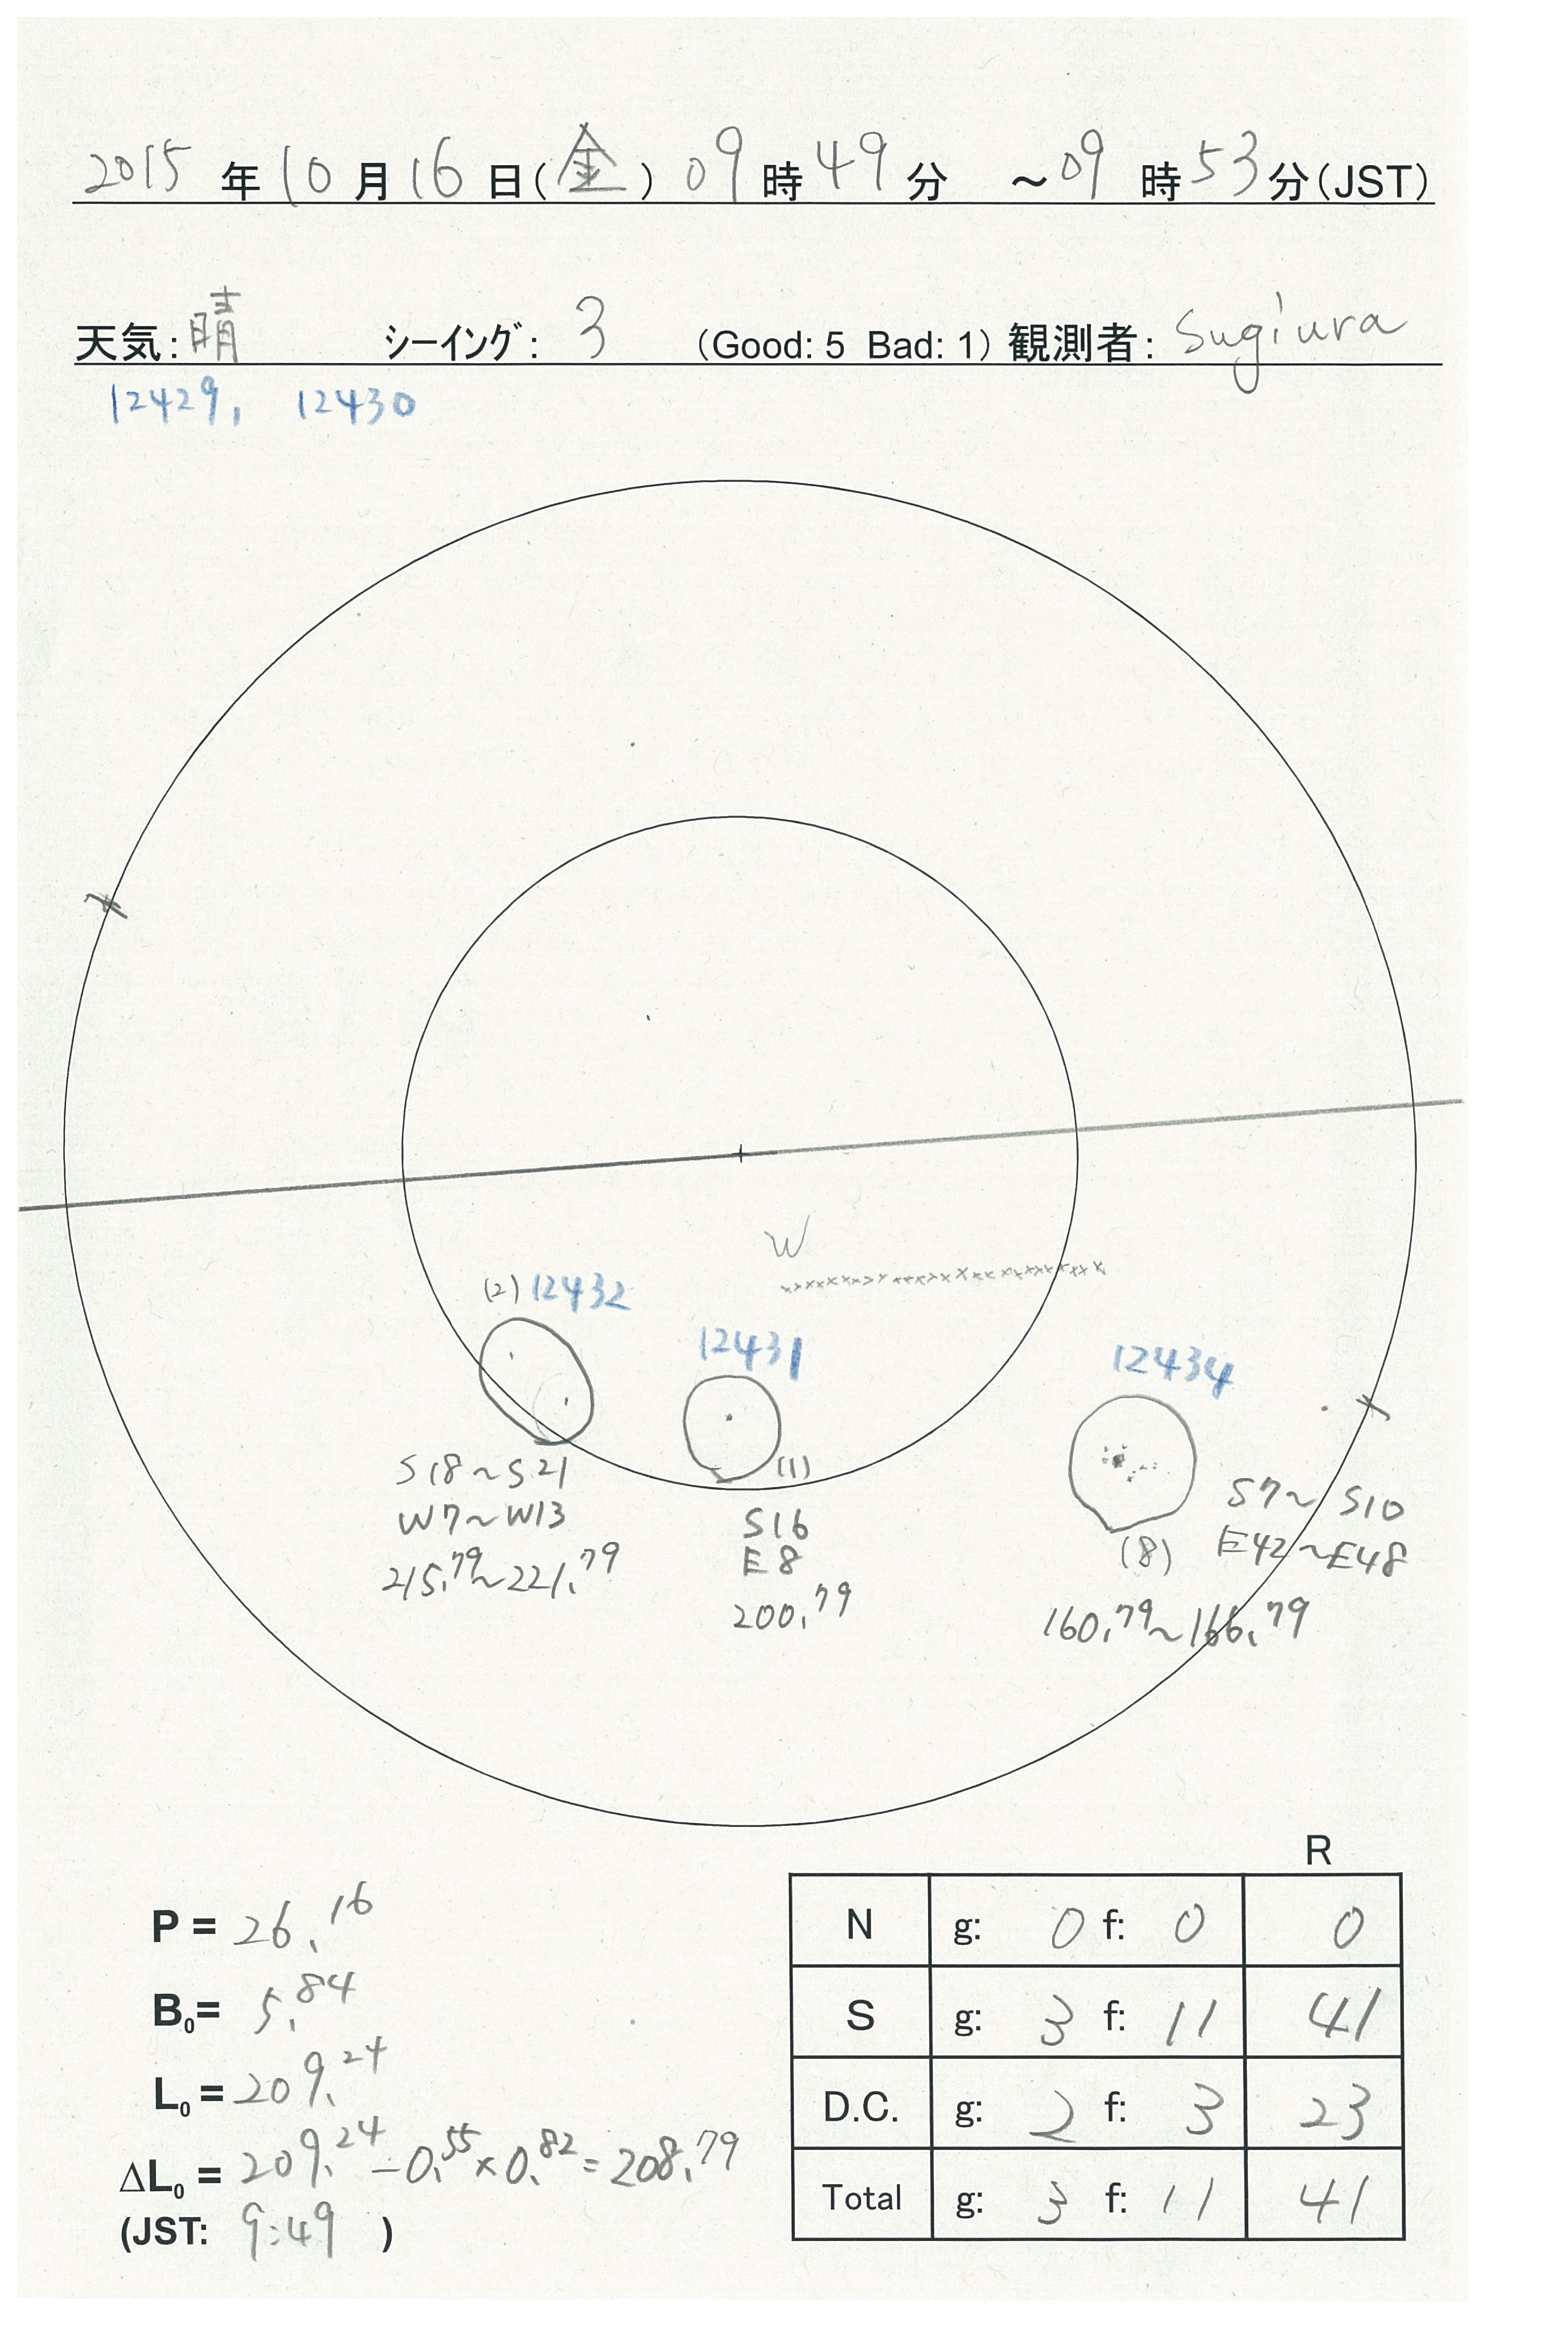 2015年10月16日(金) 09時49分 ～09時53分(JST)
天気:晴 ｼｰｲﾝｸﾞ: 3 (Good: 5 Bad: 1) 観測者: Sugiura
12429, 12430
W
(2) 12432
12431
12434
(1)
S18～S21
W7～W13
215.79～221.79
S16
E8
200.79
(8)
S7～S10
E42～E48
160.79～166.79
R
P = 26.16
B0= 5.84
L0 = 209.24
ΔL0 = 209.24 -0.55×0.82=208.79
(JST: 9:49 )
N g: 0 f: 0 0
S g: 3 f: 11 41
D.C. g: 2 f: 3 23
Total g: 3 f: 11 41